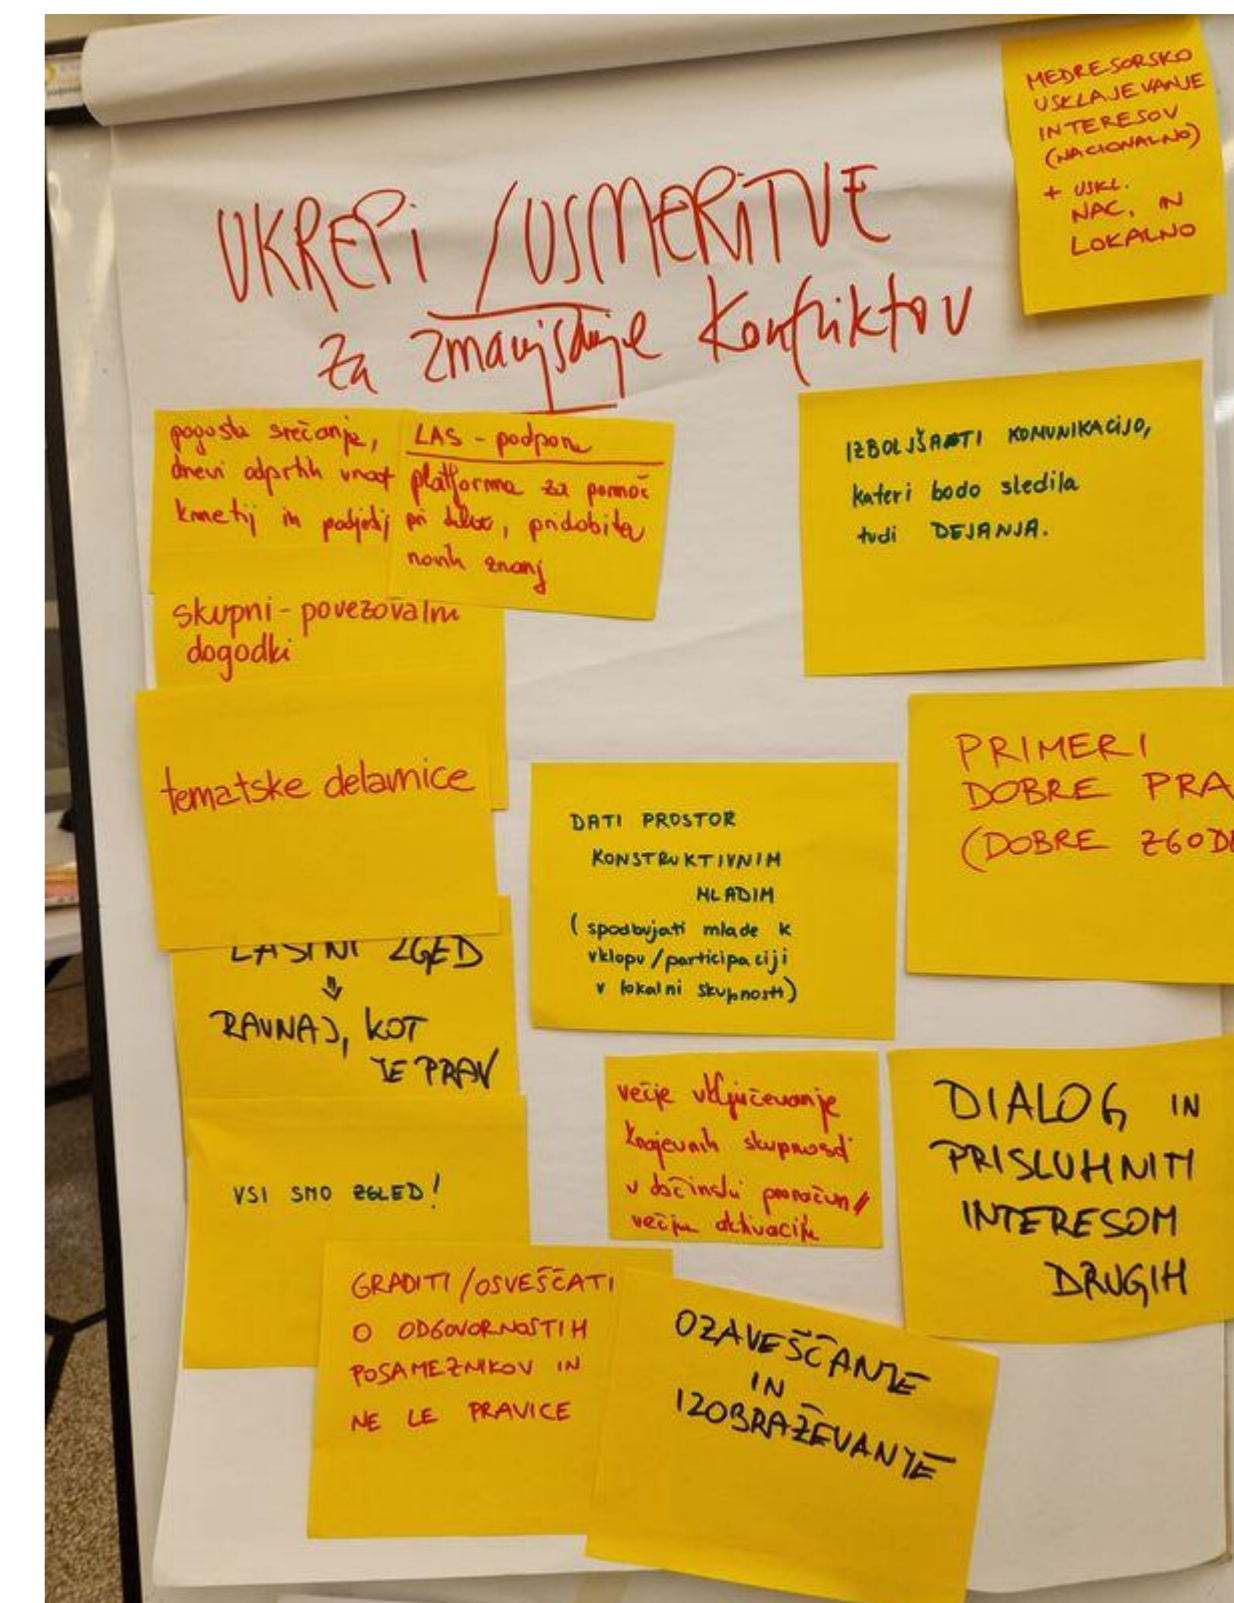 MEDRESORSKO
USKLAJEVANJE
INTERESOV
(NACIONALNO)
+ USKL.
NAC. IN
LOKALNO
UKREPi /USMERiTVE
za zmanjšanje konfliktov
pogosta srečanja,
dnevi odprtih vrat
kmetij in podjetij
LAS - podpora
platforma za pomoč
pri delu, pridobitev
novih znanj
IZBOLJŠATI KOMUNIKACIJO,
kateri bodo sledila
tudi DEJANJA.
skupni - povezovalni
dogodki
tematske delavnice
PRIMERI
DOBRE PRA
(DOBRE ZGODB
DATI PROSTOR
KONSTRUKTIVNIM
MLADIM
(spodbujati mlade k
vklopu/participaciji
v lokalni skupnosti)
LASTNI ZGED
⇓
RAVNAJ, KOT
JE PRAV
VSI SMO ZGLED!
večje vključevanje
krajevnih skupnosti
v občinski proračun/
večja aktivacija
DIALOG IN
PRISLUHNITI
INTERESOM
DRUGIH
GRADITI/OSVEŠČATI
O ODGOVORNOSTIH
POSAMEZNIKOV IN
NE LE PRAVICE
OZAVEŠČANJE
IN
IZOBRAŽEVANJE